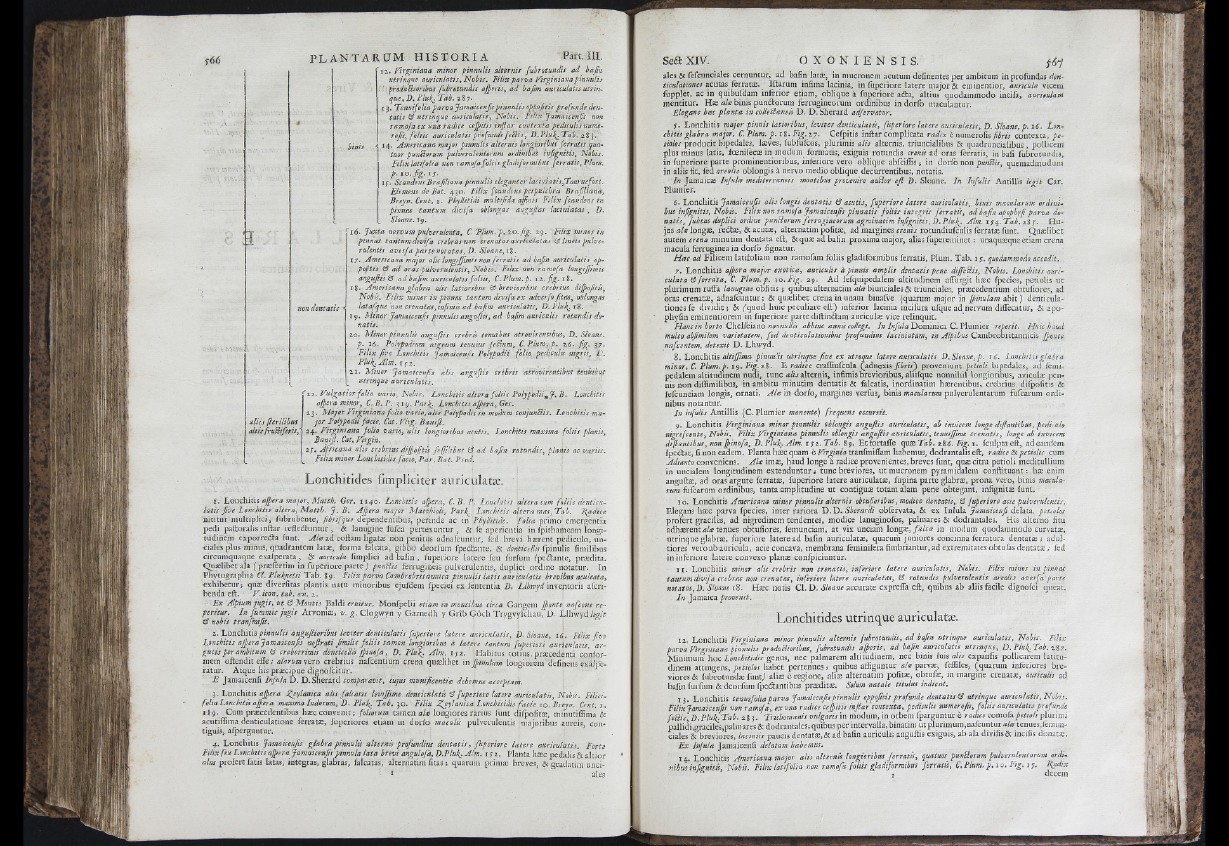 566 PLANTARUM HISTORIA Part. III.
binis
12. Virginiana minor pinnulis alternis subrotundis ad basin
utrinque auriculatis, Nobis. Filix parva Virginiana pinnulis
productioribus subrotundis asperis, ad basim auriculatis utrin-
que, D. Pluk. Tab. 287.
13. Tenuifolia parva Jamaicensis pinnulis oppositis profunde den-
tatis & utrinque auriculatis, Nobis. Filix Jamaicensis non
ramosa ex una radice cespitis instar contexta pediculis nume-
rosis, foliis auriculatis profunde sectis, D. Pluk. Tab. 283.
14. Americana major pinnulis alternis longioribus serratis qua-
tuor punctorum pulverulentorum ordinibus insignitis, Nobis.
Filix latifolia non ramosa foliis gladiformibus serratis, Plum.
p. 10. fig. 15.
15. Scandens Brasiliana pinnulis eleganter laciniatis, Tournefort.
Elemens de Bot. 430. Filix scandens perpulchra Brasiliana,
Breyn. Cent. 1. Phyllitidi multifidæ affinis Filix scandens in
pinnas tantum divisa oblongas angustas laciniatas, D.
Sloane. 19.
non dentatis
16. Juxta nervum pulverulenta, C. Plum. p. 20. fig. 29. Filix minor in
pinnas tantum divisa crebrarum crenatas auriculatas & lineis pulve-
rulentis aversa parte notatas, D. Sloane, 18.
17. Americana major alis longissimis non serratis ad basin auriculatis op-
positis & ad oras pulverulentis, Nobis. Filix non ramosa longissimis
angustis & ad basin auriculatis foliis, C. Plum. p. 12. fig. 18.
18. Americana glabra alis latioribus & brevioribus crebrius dispositis,
Nobis. Filix minor in pinnas tantum divisa ex adverso sitas, oblongas
latasque non crenatas, infimis ad basin auriculatis, D. Pluk. 18.
19. Minor Jamaicensis pinnulis angustis, ad basin auriculis rotundis do-
natis.
20. Minor pinnulis angustis crebris tenuibus atrovirentibus, D. Sloane.
p. 16. Polypodium argenus tenuius sectum, C. Plum. p. 26. fig. 37.
Filix sive Lonchitis Jamaicensis Polypodii folio pediculis nigris, D.
Pluk. Alm. 152.
21. Minor Jamaicensis alis angustis crebris atrovirentibus tenuibus
utrinque auriculatis.
aliis sterilibus
aliis fructiferis,
22. Vulgatior folio vario, Nobis. Lonchitis altera foliis Polypodii, J. B. Lonchitis
aspera minor, C. B. P. 319. Park. Lonchitis aspera, Ger.
23. Major Virginiana folio vario, alis Polypodii in modum conjunctis. Lonchitis ma-
jor Polypodii facie, Cat. Virg. Banist.
24. Virginiana folio vario, alis longioribus acutis. Lonchitis maxima foliis planis,
Banist. Cat. Virgin.
25. Africana alis crebrius dispositis sessilibus & ad basin rotundis, planis no variis.
Filix minor Lonchitidis facie, Par. Bat. Prod.
Lonchitides simpliciter auriculatæ.
1. Lonchitis aspera major, Matth. Ger. 1140. Lonchitis aspera, C. B. P. Lonchitis altera cum foliis denticu-
latis sive Lonchitis altera, Matth. J. B. Aspera major Matthioli, Park. Lonchitis altera mas, Tab. Radice
nititur multiplici, subrubente, fibrisque dependentibus, perinde ac in Phyllitide. Folia primo emergentia
pedi pastoralis instar reflectuntur, & lanugine fusca pertexuntur, & se aperientia in spithamææ longi-
tudinem exporrecta sunt. Alæ ad costam ligatæ non penitus adnascuntur, sed brevi hærent pediculo, un-
ciales plus minus, quadrantem latæ, forma falcata, gibbo deorsum spectante, & denticellis spinulis similibus
circumquaque exasperata, & auricula simplici ad basin, superiore latere seu sursum spectante, prædita.
Quælibet ala (præsertim in superiore parte) punctis ferrugineis pulverulentis, duplici ordine notatur. In
Phytographia Cl. Pluknetii Tab. 89. Filix parva Cambrobritannica pinnulis latis auriculatis brevibus aculeata,
exhibetur; quæ diversitas plantis natu minoribus ejusdem speciei ex sententia D. Llhwyd inventoris ascri-
benda est. V. icon. tab. nn. 2.
Ex Alpium jugis, ut & Montis Baldi eruitur. Monspelii etiam in montibus circa Gangem sponte nascens re-
peritur. In summis jugis Arvoniæ, v. g. Clogwyn y Garnedh y Grîb Gôch Trygvylchau, D. Llhwyd legit
& nobis transmisit.
2. Lonchitis pinnulis angustioribus leviter denticulatis superiore latere auriculatis, D. Sloane, 16. Filix sive
Lonchitis aspera Jamaicensis nostrati similis foliis tamen longioribus à latere tantum superiore auriculatis, ar-
gutis per ambitum & crebrioribus denticellis spinosa, D. Pluk. Alm. 152. Habitus totius præcedenti confor-
mem ostendit esse; alarum vero crebrius nascentium crena quælibet in spinulam longiorem desinens exaspe-
ratur. Atque his præcipue dignoscitur.
E Jamaicensi Insula D. D. Sherard comparavit, cujus munificentiæ debemus acceptam.
3. Lonchitis aspera Zeylanica alis falcatis levissime denticulatis & superiore latere auriculatis, Nobis. Filici-
folia Lonchitis aspera maxima Indorum, D. Pluk. Tab. 30. Filix Zeylanica Lonchitidis facie 10. Breyn. Cent. 1.
119. Cum præcedentibus hæc convenit: foliorum tamen alæ longiores rarius sunt dispositæ, minutissima &
acutissima denticulatione serratæ, superiores etiam in dorso maculis pulveculentis majoribus aureis, con-
tiguis, asperguntur.
4. Lonchitis Jamaicensis glabra pinnulis alternis profundius dentatis, superiore latere auriculatis. Forte
Filix seu Lonchitis aspera Jamaicensis pinnula lata brevi angulosa, D. Pluk. Alm. 152. Planta hæc pedalis & altior
alas profert satis latas, integras, glabras, falcatas, alternatim sitas: quarum primæ breves, & gradatim unci-
1 ales
Sect XIV. OXONIENSIS. 567
ales & sescunciales cernuntur, ad basin latæ, in mucronem acutum desinentes per ambitum in profundas den-
ticulationes acutas serratæ. Illarum infima lacinia, in superiore latere major & eminentior, auriculæ vicem
supplet, ac in quibusdam inferior etiam, oblique a superiore acta, altius quodammodo incisa, auriculam
mentitur. Hæ alæ binis punctorum ferrugineorum ordinibus in dorso maculantur.
Elegans hæc planta in codicillaris D. D. Sherard asservatur.
5. Lonchitis major pinnis latioribus, leviter denticulatis, superiore latere auriculatis, D. Sloane, p. 16. Lon-
chitis glabra major, C. Plum. p. 18. Fig. 27. Cespitis instar complicata radix è numerosis fibris contexta, pe-
tiolos producit bipedales, læves, subfuscos, plurimis alis alternis, triuncialibus & quadruncialibus, pollicem
plus minus latis, fœnileæ in modum formatis, exiguis rotundis crenis ad oras serratis, in basi subrotundis,
in superiore parte prominentioribus, inferiore vero oblique abscissis, in dorso non paucis, quemadmodum
in aliis sic, sed areolis oblongis à nervo medio oblique decurrentibus, notatis.
In Jamaicæ Insulæ mediterraneis montibus provenire author est D. Sloane. In Insulis Antillis legit Car.
Plumier.
6. Lonchitis Jamaicensis alis longis dentatis & acutis, superiore latere auriculatis, binis macularum ordini-
bus insignitis, Nobis. Filix non ramosa Jamaicensis pinnatis foliis integris serratis, ad basin apophysi parva do-
natis, subtus duplici ordine punctorum ferrugineorum agminatim insignitis, D. Pluk. Alm. 154. Tab. 287. Hu-
jus alæ longæ, rectæ, & acutæ, alternatim positæ, ad margines crenis rotundiusculis serratæ sunt. Quælibet
autem crena minutim dentata est, & quæ ad basin proxima major, alias supereminet: unaquæque etiam crena
macula ferruginea in dorso signatur.
Hæc ad Filicem latifoliam non ramosam foliis gladiformibus serratis, Plum. Tab. 15. quodammodo accedit.
7. Lonchitis aspera major enotica, auriculis à pinnis amplis dentatis pene dissectis, Nobis. Lonchitis auri-
culata & serrata, C. Plum. p. 10. Fig. 29. Ad sesquipedalem altitudinem assurgit hæc species, petiolis ut
plurimum ruffa lanugine obsitis; quibus alternatim alæ biunciales & triunciales, præcedentium obtusiores, ad
oras crenatæ, adnascuntur: & quælibet crena in unam binasve (quarum major in spinulam abit) denticula-
tiones se dividit; & (quod huic peculiare est) inferior lacinia incisura usque ad nervum dissecatur, & apo-
physin eminentiorem in superiore parte distinctam auriculæ vice relinquit.
Hanc in horto Chelseiano nonnullis abhinc annis collegi. In Insula Dominici C. Plumier reperit. Hujc haud
multo absimilem varietatem, sed denticulationibus profundius laciniatam, in Alpibus Cambrobritannicis sponte
nascentem, detexit D. Lhuyd.
8. Lonchitis altissima pinnulis utrinque sive ex utroque latere auriculatis D. Sloane, p. 16. Lonchitis glabra
minor, C. Plum. p. 19. Fig. 28. E radice crassiuscula (adnexis fibris) proveniunt petioli bipedales, ad semi-
pedalem altitudinem nudi, tunc alis alternis, infimis brevioribus, aliisque nonnihil longioribus, articulæ pen-
nis non dissimilibus, in ambitu minutim dentatis & falcatis, inordinatim hærentibus, crebrius dispositis &
sescunciam longis, ornati. Alæ in dorso, margines versus, binis macularum pulverulentarum fuscarum ordi-
nibus notantur.
In insulis Antillis (C. Plumier monente) frequens occurrit.
9. Lonchitis Virginiana minor pinnulis oblongis angustis auriculatis, ab invicem longe distantibus, pediculo
nigrescente, Nobis. Filix Virginiana pinnulis oblongis angustis auriculatis, tenuissime crenatis, longe ab invicem
distantibus, non spinosa, D. Pluk. Alm. 152. Tab. 89. Et fortasse quæ Tab. 286. Fig. 1. sculpta est, ad eandem
spectat, si non eadem. Planta hæc quam è Virginia transmissam habemus, dodrantalis est, radice & petiolis cum
Adianto conveniens. Alæ imæ, haud longe à radice provenientes, breves sunt, quæ citra petioli meditullium
in uncialem longitudinem extenduntur; tunc breviores, ut mucronem pyramidalem constituant: hæ enim
angustæ, ad oras argute serratæ, superiore latere auriculatæ, supina parte glabræ, prona vero, binis macula-
rum fuscarum ordinibus, tanta amplitudine ut contiguæ totam alam pene obtegant, insignitæ sunt.
10. Lonchitis Americana minor pinnulis alternis obtusioribus, modice dentatis, & superiore aure pulverulentis,
Elegans hæc parva species, inter rariora D. D. Sherardi observata, & ex Insula Jamaicensi delata, petiolos
profert graciles, ad nigredinem tendentes, modice lanuginosos, palmares & dodrantales. His alterno situ
adhærent alæ tenues obtusiores, semunciam, at vix unciam longæ, falcis in modum quodammodo curvatæ,
utrinque glabræ, superiore latere ad basin auriculatæ, quarum juniores concinna serratura dentatæ: adul-
tiores vero ab auricula, acie concava, membrana feminifera fimbriantur, ad extremitates obtusas dentatæ; sed
in inferiore latere convexo planæ conspiciuntur.
11. Lonchitis minor alis crebris non crenatis, inferiore latere auriculatis, Nobis. Filix minor in pinnas
tantum divisa crebras non crenatas, inferiore latere auriculatas, & rotundis pulverulentis areolis aversa parte
notatas, D. Sloane 18. Hæc notis Cl. D. Sloane accurate expressa est, quibus ab aliis facile dignosci queat.
In Jamaica provenit.
Lonchitides utrinque auriculatæ.
12. Lonchitis Virginiana minor pinnulis alternis subrotundis, ad basin utrinque auriculatis, Nobis. Filix
parva Virginiana pinnulis productioribus, subrotundis asperis, ad basin auriculatis utrinque, D. Pluk. Tab. 287.
Minimum hoc Lonchitidis genus, nec palmarem altitudinem, nec binis suis alis expansis pollicarem latitu-
dinem attingens, petiolos habet pertenues; quibus affiguntur alæ parvæ, sessiles, (quarum inferiores bre-
viores & subrotundæ sunt,) aliæ è regione, aliæ alternatim positæ, obtusæ, in margine crenatæ, auriculis ad
basin sursum & deorsum spectantibus præditæ. Solum natale titulus indicat.
13. Lonchitis tenuifolia parva Jamaicensis pinnulis oppositis profunde dentatis & utrinque auriculatis, Nobis.
Filix Jamaicensis non ramosa, ex una radice cespitis instar contexta, pediculis numerosis, foliis auriculatis profunde
sectis, D. Pluk. Tab. 283. Trichomanis vulgaris in modum, in orbem sparguntur è radice comosa petioli plurimi
pallidi, graciles, palmares & dodrantales, quibus per intervalla, binatim ut plurimum, nascuntur alæ tenues, semun-
ciales & breviores, lacuris paucis dentatæ, & ad basin auriculis angustis exiguis, ab ala divisis & incisis donatæ.
Ex Insula Jamaicensi delatam habemus.
14. Lonchitis Americana major alis alternis longioribus serratis, quatuor punctorum pulverulentorum ordi-
nibus insignitis, Nobis. Filix latifolia non ramosa foliis gladiformibus serratis, C. Plum. p. 10. Fig. 15. Radix
1 decem